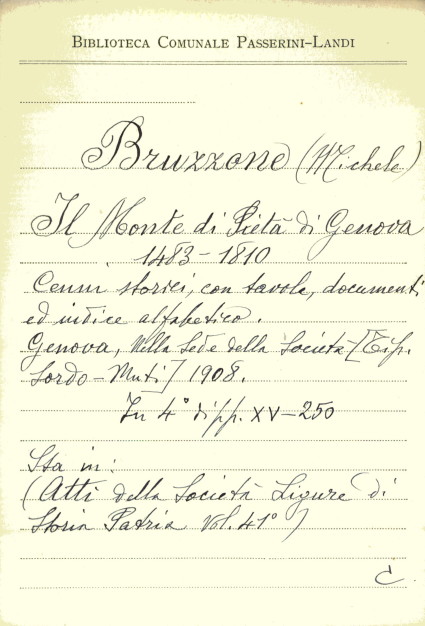 BIBLIOTECA COMUNALE PASSERINI-LANDI
Bruzzone (Michele)
Il Monte di Pietà di Genova
1483-1810
Cenni storici, con tavole, documenti
ed indice alfabetico.
Genova, Nella Sede della Società [Tip.
Sordo-Muti] 1908.
In 4° di pp. XV-250
Sta in:
(Atti della Società Ligure di
Storia Patria Vol. 41°)
C.